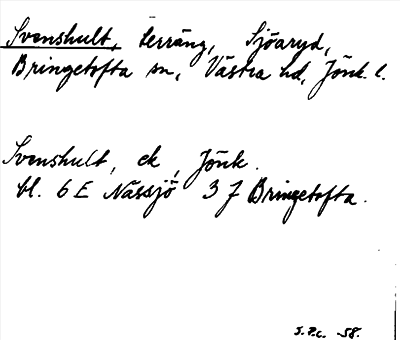 Svenshult, terräng, Sjöaryd,
Bringetofta sn, Västra hd, Jönk. l.
Svenshult, ek, Jönk.
bl. 6 E Nässjö 3 J Bringetofta.
-58.